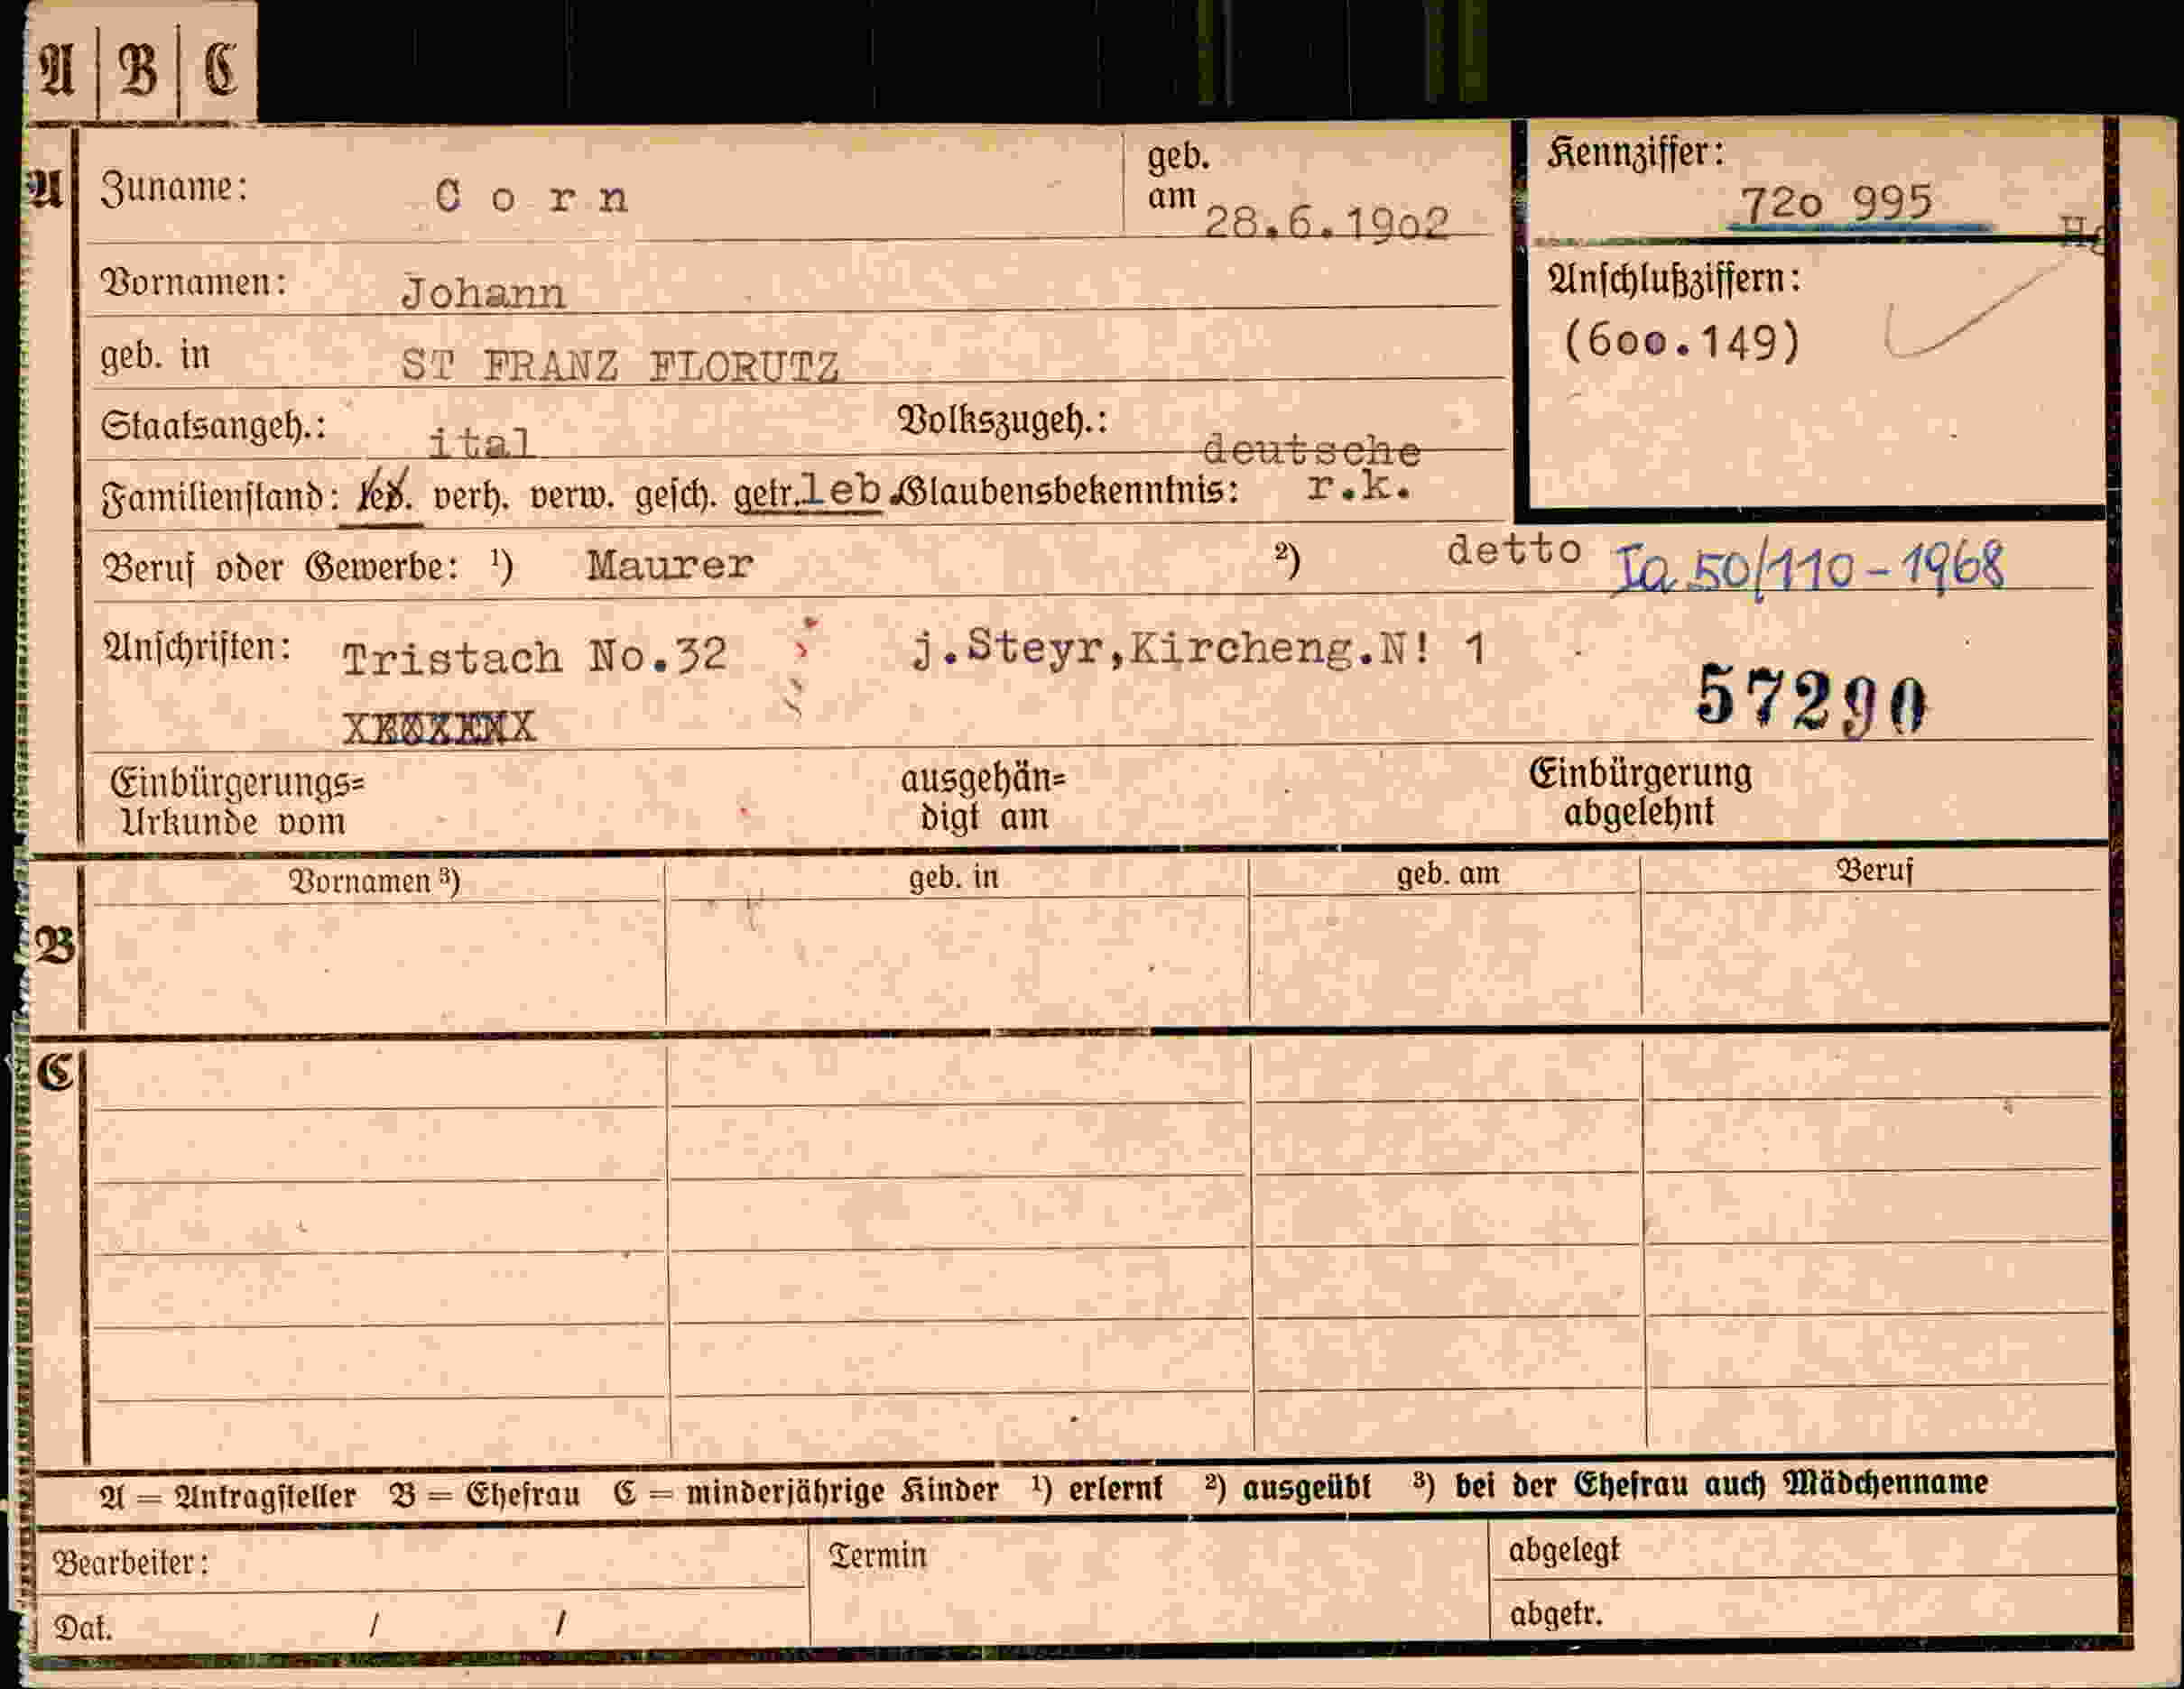 A | B | C
A
Zuname: Corn geb. am 28.6.19o2
Kennziffer: 72o 995
Vornamen: Johann
Anschlußziffern: (6oo.149)
geb. in ST FRANZ FLORUTZ
Staatsangeh.: ital Volkszugeh.: deutsche
Familienstand: led. verh. verw. gesch. getr.leb. Glaubensbekenntnis: r.k.
Beruf oder Gewerbe: ¹) Maurer ²) detto Ia 50/110-1968
Anschriften: Tristach No.32 j.Steyr,Kircheng.N! 1
57290
Einbürgerungs= ausgehän= Einbürgerung
Urkunde vom digt am abgelehnt
B
Vornamen ³) geb. in geb. am Beruf
C
A = Antragsteller B = Ehefrau C = minderjährige Kinder ¹) erlernt ²) ausgeübt ³) bei der Ehefrau auch Mädchenname
Bearbeiter: Termin abgelegt
Dat. / / abgetr.